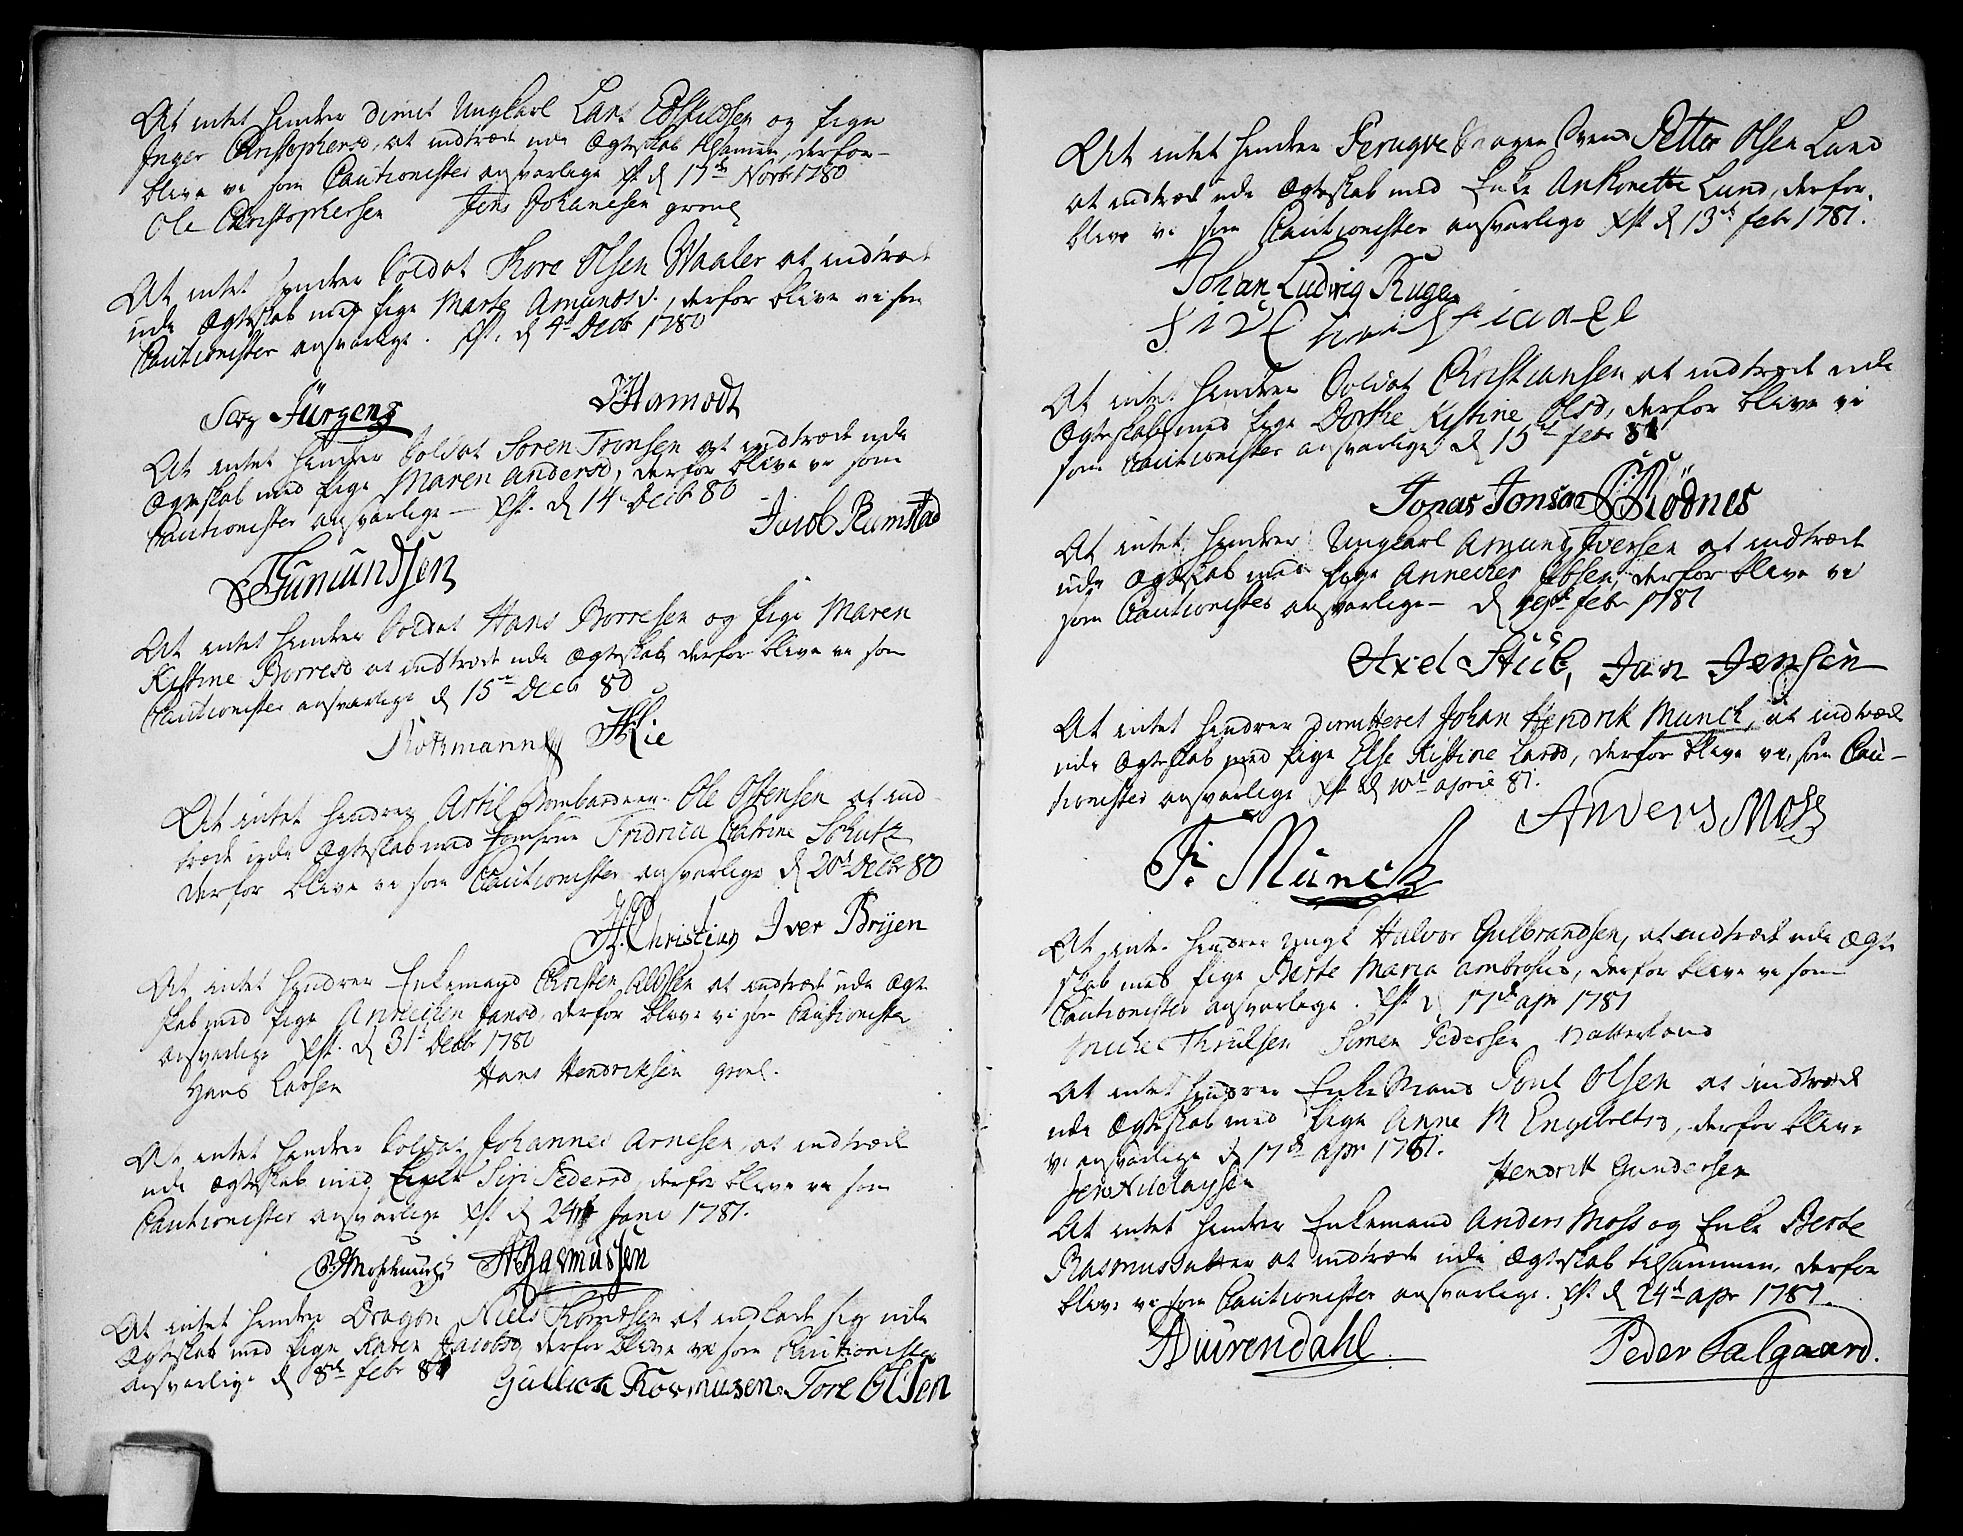 At intet hindrer dimit Ungkarl Lars Edskildsen og pige
Inger Christophersd, at indtræde udi Ægteskab tilsamen, derfor
blive vi som Cautionister ansvarlige Xst d 17de Novbr 1780
Ole Christophersen Jens Johanesen
At intet hindrer Soldat Thore Olsen Waaler at indtræde
udi Ægteskab med pige Marte Amundsd., derfor blive vi som
Cautionister ansvarlige. Xst. d 4de Decbr 1780
Jürgens
At intet hindrer Soldat Søren Tronsen at indtræde udi
Ægteskab med pige Maren Andersd, derfor blive vi som
Cautionister ansvarlige – Xst. d 14de Decbr 80
Jacob Rumstad
At intet hindrer Soldat Hans Borresen og pige Maren
Kistine Borresd at indtræde udi Ægteskab derfor blive vi som
Cautionister ansvarlige d 15de Decbr 80
Lie
At intet hindrer Artil Bombarderer Ole Ostensen at ind-
træde udi Ægteskab med Jomfrue Fridrica Catrine Schutz
derfor blive vi som Cautionister ansvarlige d 20de Decbr 80
Christian Iver Brijen
At intet hindrer Enkemand Christen Olsen at indtræde udi Ægte
skab med pige Anneichen Jansd, derfor blive vi som Cautionister
ansvarlige Xst. d 31te Decbr 1780
Hans Larsen Hans Hendriksen
At intet hindrer Soldat Johannes Arnesen, at indtræde
udi Ægteskab med Siri Pedersd, derfor blive vi som
Cautionister ansvarlige Xst d 24de Janv 1781.
Rasmussen
At intet hindrer Dragon Niels at indlade sig udi
Ægteskab med pige Karen Jacobsd derfor blive vi som Cautionister
ansvarlige d 8de febr 81 Gullick Rosmusen Tore Olsen
At intet hindrer Svend Petter Olsen Lund
at indtræde udi Ægteskab med Enke Antonette Lund, derfor
blive vi som Cautionister ansvarlige Xst d 13de febr 1781.
Johan Ludvig Ruge
At intet hindrer Soldat Christiansen at indtræde udi
Ægteskab med pige Dorthe Kistine Olsd, derfor blive vi
som Cautionister ansvarlige d 15de febr 81
Jonas Jonson Rödnes
At intet hindrer Ungkarl Amund Iversen at indtræde
udi Ægteskab med pige Annechen derfor blive vi
som Cautionister ansvarlige – d febr 1781
Axel Stub, Jan Jensen
At intet hindrer Dimitteret Johan Hendrik Munck, at indtræde
udi Ægteskab med pige Else Kistine Larsd, derfor blive vi, som Cau-
tionister ansvarlige Xst d 10de april 81.
Anders Moss
Fr. Munck
At intet hindrer ungk Halvor Gulbrandsen, at indtræde udi Ægte
skab med pige Berte Maria Ambrosus, derfor blive vi som
Cautionister ansvarlige. Xst d 17de apr 1781
Thrulsen Simen Pedersen
At intet hindrer Enke Mand Poul Olsen at indtræde
udi Ægteskab med pige Anne M Engebretsd, derfor blive
vi ansvarlige d 17de apr 1781.
Jens Nilolaysen Hendrik Gundersen
At intet hindrer Enkemand Anders Moss og Enke Berte
Rasmusdatter at indtræde udi Ægteskab tilsammen, derfor
blive vi som Cautionister ansvarlige. Xst. d 24de apr 1781.
Durendahl Peder Dalgaard.